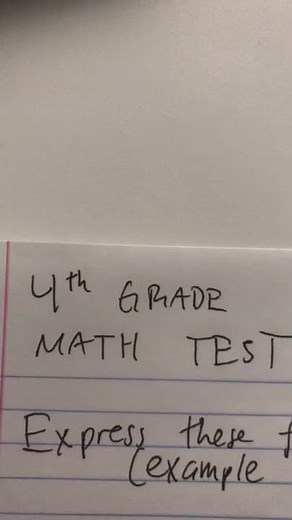 4th GRADE
MATH TEST
Express these f
(example